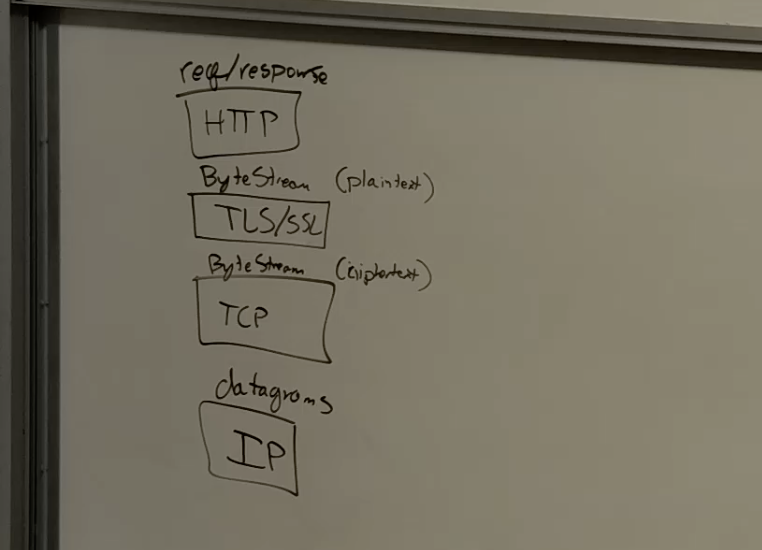 req/response
HTTP
ByteStream (plaintext)
TLS/SSL
ByteStream (ciphertext)
TCP
datagrams
IP